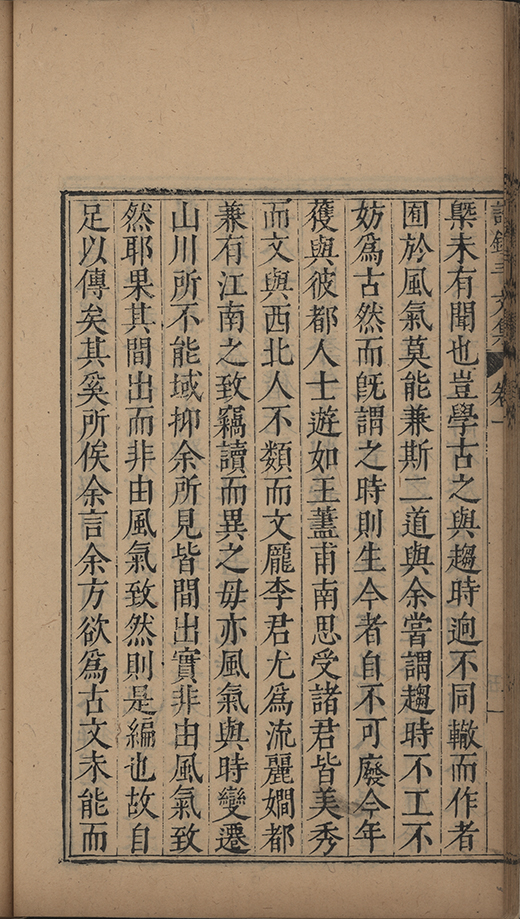 卷一
槩未有聞也豈學古之與趨時逈不同轍而作者
囿於風氣莫能兼斯二道與余嘗謂趨時不工不
妨爲古然而旣謂之時則生今者自不可廢今年
獲與彼都人士遊如王藎甫南思受諸君皆美秀
而文與西北人不類而文龎李君尤爲流麗嫺都
兼有江南之致竊讀而異之毋亦風氣與時變遷
山川所不能域抑余所見皆間出實非由風氣致
然耶果其間出而非由風氣致然則是編也故自
足以傳矣其奚所俟余言余方欲爲古文未能而